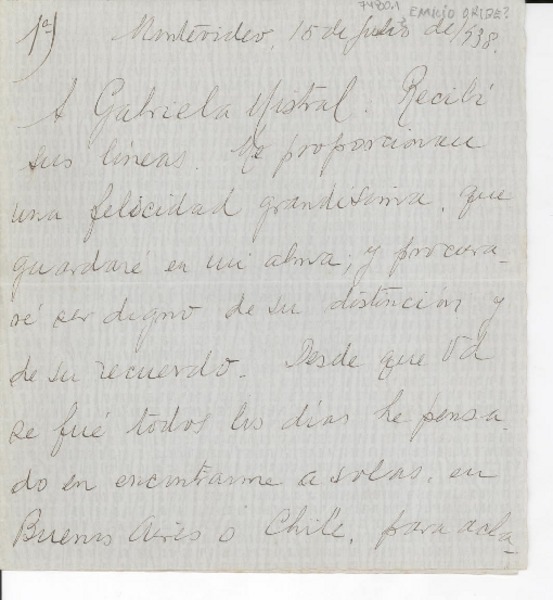 748001 EMILIO ORIBE?
1º) Montevideo, 15 de Julio de 1938.
A Gabriela Mistral. Recibí
sus líneas. Me proporcionan
una felicidad grandísima, que
guardaré en mi alma; y procura-
ré ser digno de su distinción y
de su recuerdo. Desde que Vd
se fué todos los días he pensa-
do en encontrarme a solas, en
Buenos Aires ó Chile, para acla-